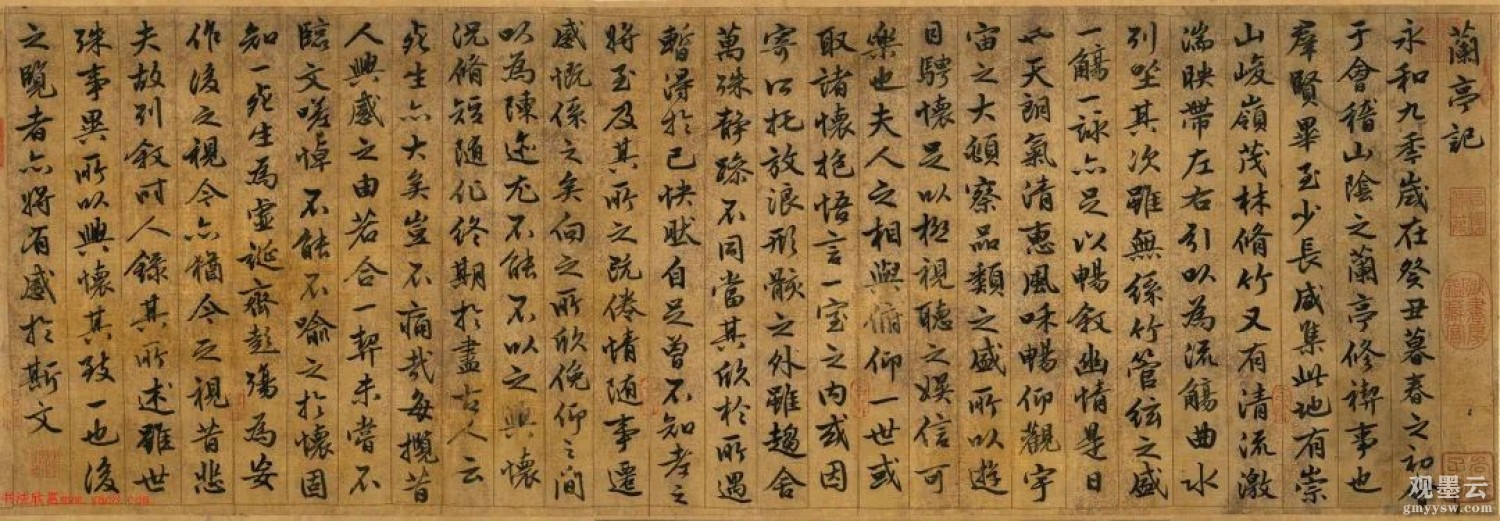 蘭亭記
永和九季歲在癸丑暮春之初會
于會稽山陰之蘭亭修禊事也
羣賢畢至少長咸集此地有崇
山峻嶺茂林脩竹又有清流激
湍映帶左右引以為流觴曲水
列坐其次雖無絲竹管絃之盛
一觴一詠亦足以暢敘幽情是日
也天朗氣清惠風和暢仰觀宇
宙之大頫察品類之盛所以遊
目騁懷足以極視聽之娛信可
樂也夫人之相與俯仰一世或
取諸懷抱悟言一室之內或因
寄所托放浪形骸之外雖趨舍
萬殊靜躁不同當其欣於所遇
暫得於己快然自足曾不知老之
將至及其所之既倦情隨事遷
感慨係之矣向之所欣俛仰之間
以為陳迹尤不能不以之興懷
況脩短隨化終期於盡古人云
死生亦大矣豈不痛哉每攬昔
人興感之由若合一契未嘗不
臨文嗟悼不能不喻之於懷固
知一死生為虛誕齊彭殤為妄
作後之視今亦猶今之視昔悲
夫故列敘時人錄其所述雖世
殊事異所以興懷其致一也後
之覽者亦將有感於斯文
书法欣赏www.yac8.com
观墨云
gmyysw.com